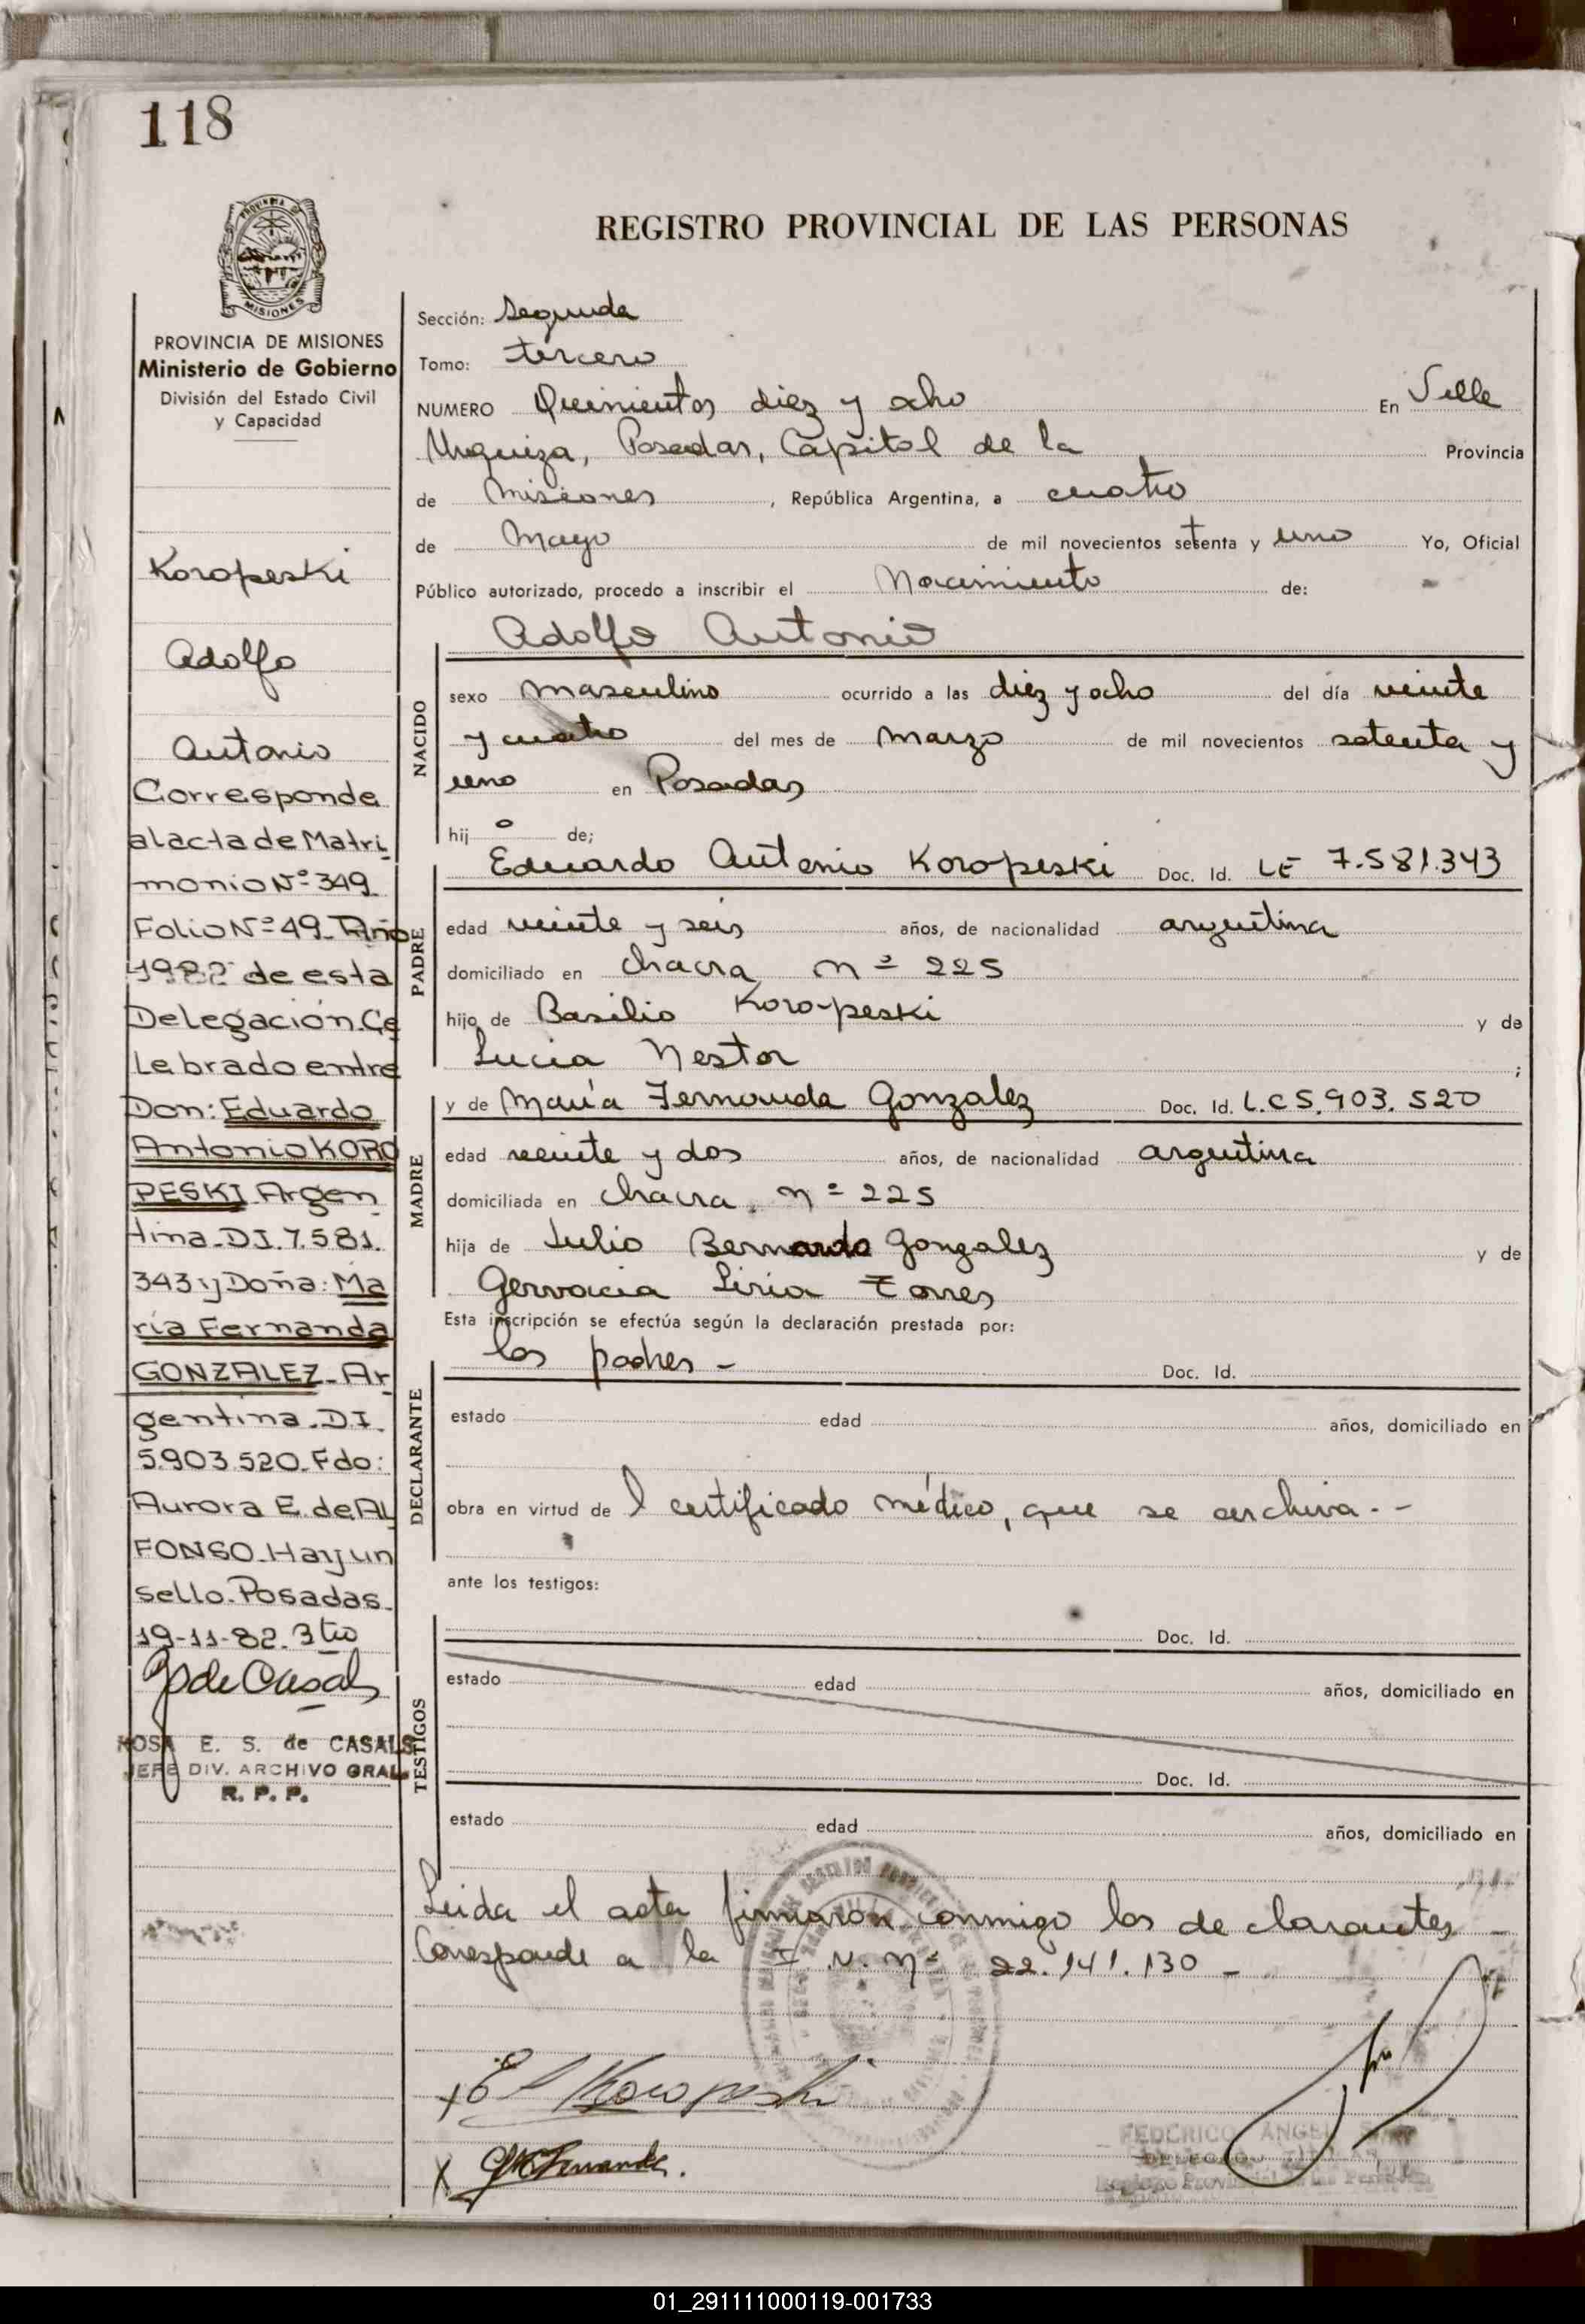 118
PROVINCIA DE
MISIONES
PROVINCIA DE MISIONES
Ministerio de Gobierno
División del Estado Civil
y Capacidad
Koropeski
Adolfo
Antonio
Corresponde
al acta de Matri
monio Nº 349
Folio Nº 49_ Año
1982 de esta
Delegación. Ce
lebrado entre
Don: Eduardo
Antonio KORO
PESKI Argen
tina_ D.I. 7.581.
343 y Doña: Ma
ría Fernanda
GONZALEZ_ Ar
gentina. D.I.
5.903.520. Fdo:
Aurora E. de AL
FONSO. Hay un
sello. Posadas.
19-11-82. 3tro
de Casals
ROSA E. S. de CASALS
JEFE DIV. ARCHIVO GRAL.
R. P. P.
REGISTRO PROVINCIAL DE LAS PERSONAS
Sección: Segunda
Tomo: tercero
NUMERO Quinientos diez y ocho En Villa
Urquiza, Posadas, Capital de la Provincia
de Misiones, República Argentina, a cuatro
de Mayo de mil novecientos setenta y uno Yo, Oficial
Público autorizado, procedo a inscribir el Nacimiento de:
Adolfo Antonio
NACIDO
sexo masculino ocurrido a las diez y ocho del día veinte
y cuatro del mes de Marzo de mil novecientos setenta y
uno en Posadas
hij o de;
Eduardo Antonio Koropeski Doc. Id. LE 7.581.343
PADRE
edad veinte y seis años, de nacionalidad argentina
domiciliado en chacra nº 225
hijo de Basilio Koropeski y de
Lucia Nestor ;
y de María Fernanda Gonzalez Doc. Id. L.C 5.903.520
MADRE
edad veinte y dos años, de nacionalidad argentina
domiciliada en chacra nº 225
hija de Julio Bernardo Gonzalez y de
Gervacia Liria Torres
Esta inscripción se efectúa según la declaración prestada por:
los padres - Doc. Id.
DECLARANTE
estado edad años, domiciliado en
obra en virtud de l certificado médico, que se archiva.--
ante los testigos:
Doc. Id.
TESTIGOS
estado edad años, domiciliado en
Doc. Id.
estado edad años, domiciliado en
Leida el acta firmaron conmigo los declarantes -
Corresponde a la I. N. Nº 22.141.130 -
x E A Koropeski
x Fernanda.
FEDERICO ANGEL
01_291111000119-001733